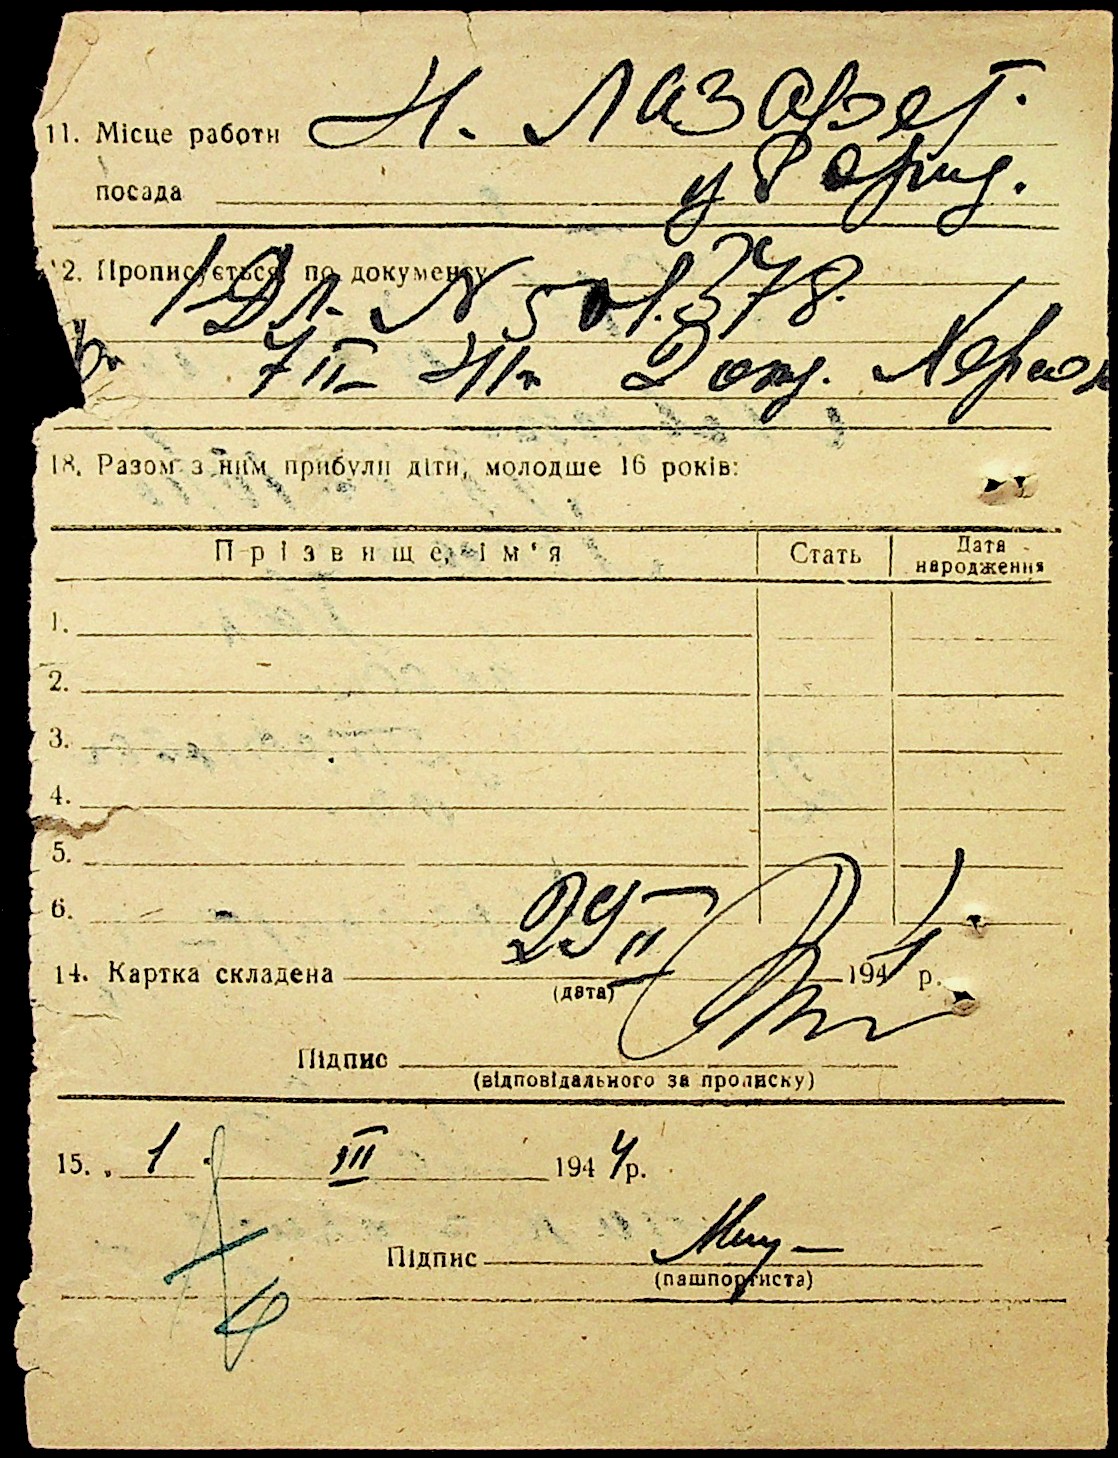 11. Місце роботи Н. Лазарет.
посада
12. Прописується по документу
Дл. N 501.378.
7 II 41
18. Разом з ним прибули діти, молодше 16 років:
Прізвище, ім'я Стать Дата народження
1.
2.
3.
4.
5.
6.
14. Картка складена 29 II 1944 р.
(дата)
Підпис
(відповідального за прописку)
15. „ 1 " III 1944 р.
Підпис
(пашпортиста)